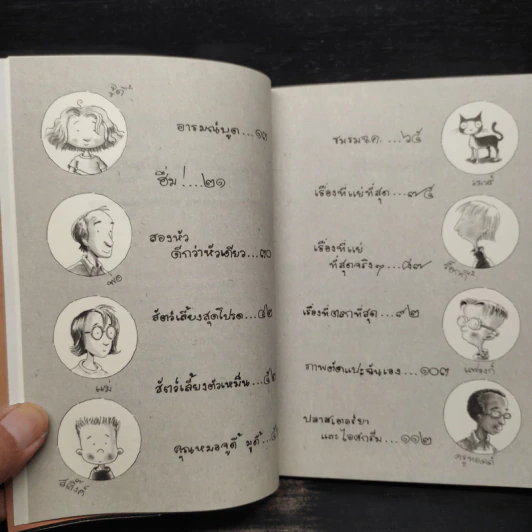 จูดี้
อารมณ์บูด...๑๓
ฮึ่ม!...๒๑
สองหัว
ดีกว่าหัวเดียว...๓๐
พ่อ
สัตว์เลี้ยงสุดโปรด...๔๒
แม่
สัตว์เลี้ยงตัวเหม็น...๕๒
คุณหมอจูดี้ มูดี้...
สติ๊งค์
ชมรม...๖๕
เมาส์
เรื่องที่แย่ที่สุด...๗๕
เรื่องที่แย่
ที่สุดจริงๆ...๘๗
เรื่องที่ตลกที่สุด...๙๒
แฟรงก์
ภาพตัดแปะฉันเอง...๑๐๓
ปลาสเตอร์ยา
และไอศกรีม...๑๑๒